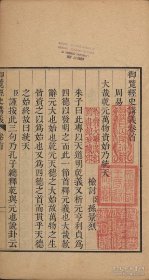 御覽經史講義卷首
周易
大哉乾元萬物資始乃統天
檢討臣孫景烈
朱子曰此專以天道明乾義又析元亨利貞爲
四德以發明之而此一節首釋元義也大哉歎
辭元大也始也乾元天德之大始故萬物之生
皆資之以爲始也又爲四德之首而貫乎天德
之始終故曰統天
臣謹按此二句孔子釋乾與元也